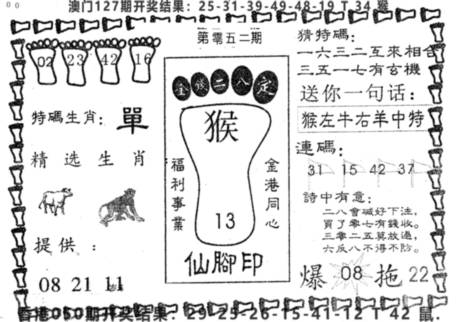 澳门127期开奖结果：25-31-39-49-48-19 T 34 猴
02 23 42 16
特碼生肖：單
精选生肖
提供：
08 21 11
第零五二期
金錢二八定
猴
福利事業
金港同心
13
仙腳印
猜特碼：
一六三二互來相合
三五一七有玄機
送你一句话：
猴左牛右羊中特
連碼：
31 15 42 37
詩中有意：
二八會碱好下注，
買了零七有錢收。
三零二五莫放過，
六反八不得不防。
爆 08 拖 22
香港050期开奖结果：29-25-26-15-41-12 T 42 鼠.